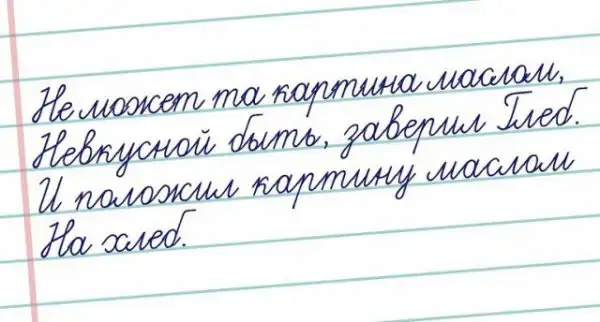 Не может та картина маслом,
Невкусной быть, заверил Глеб.
И положил картину маслом
На хлеб.